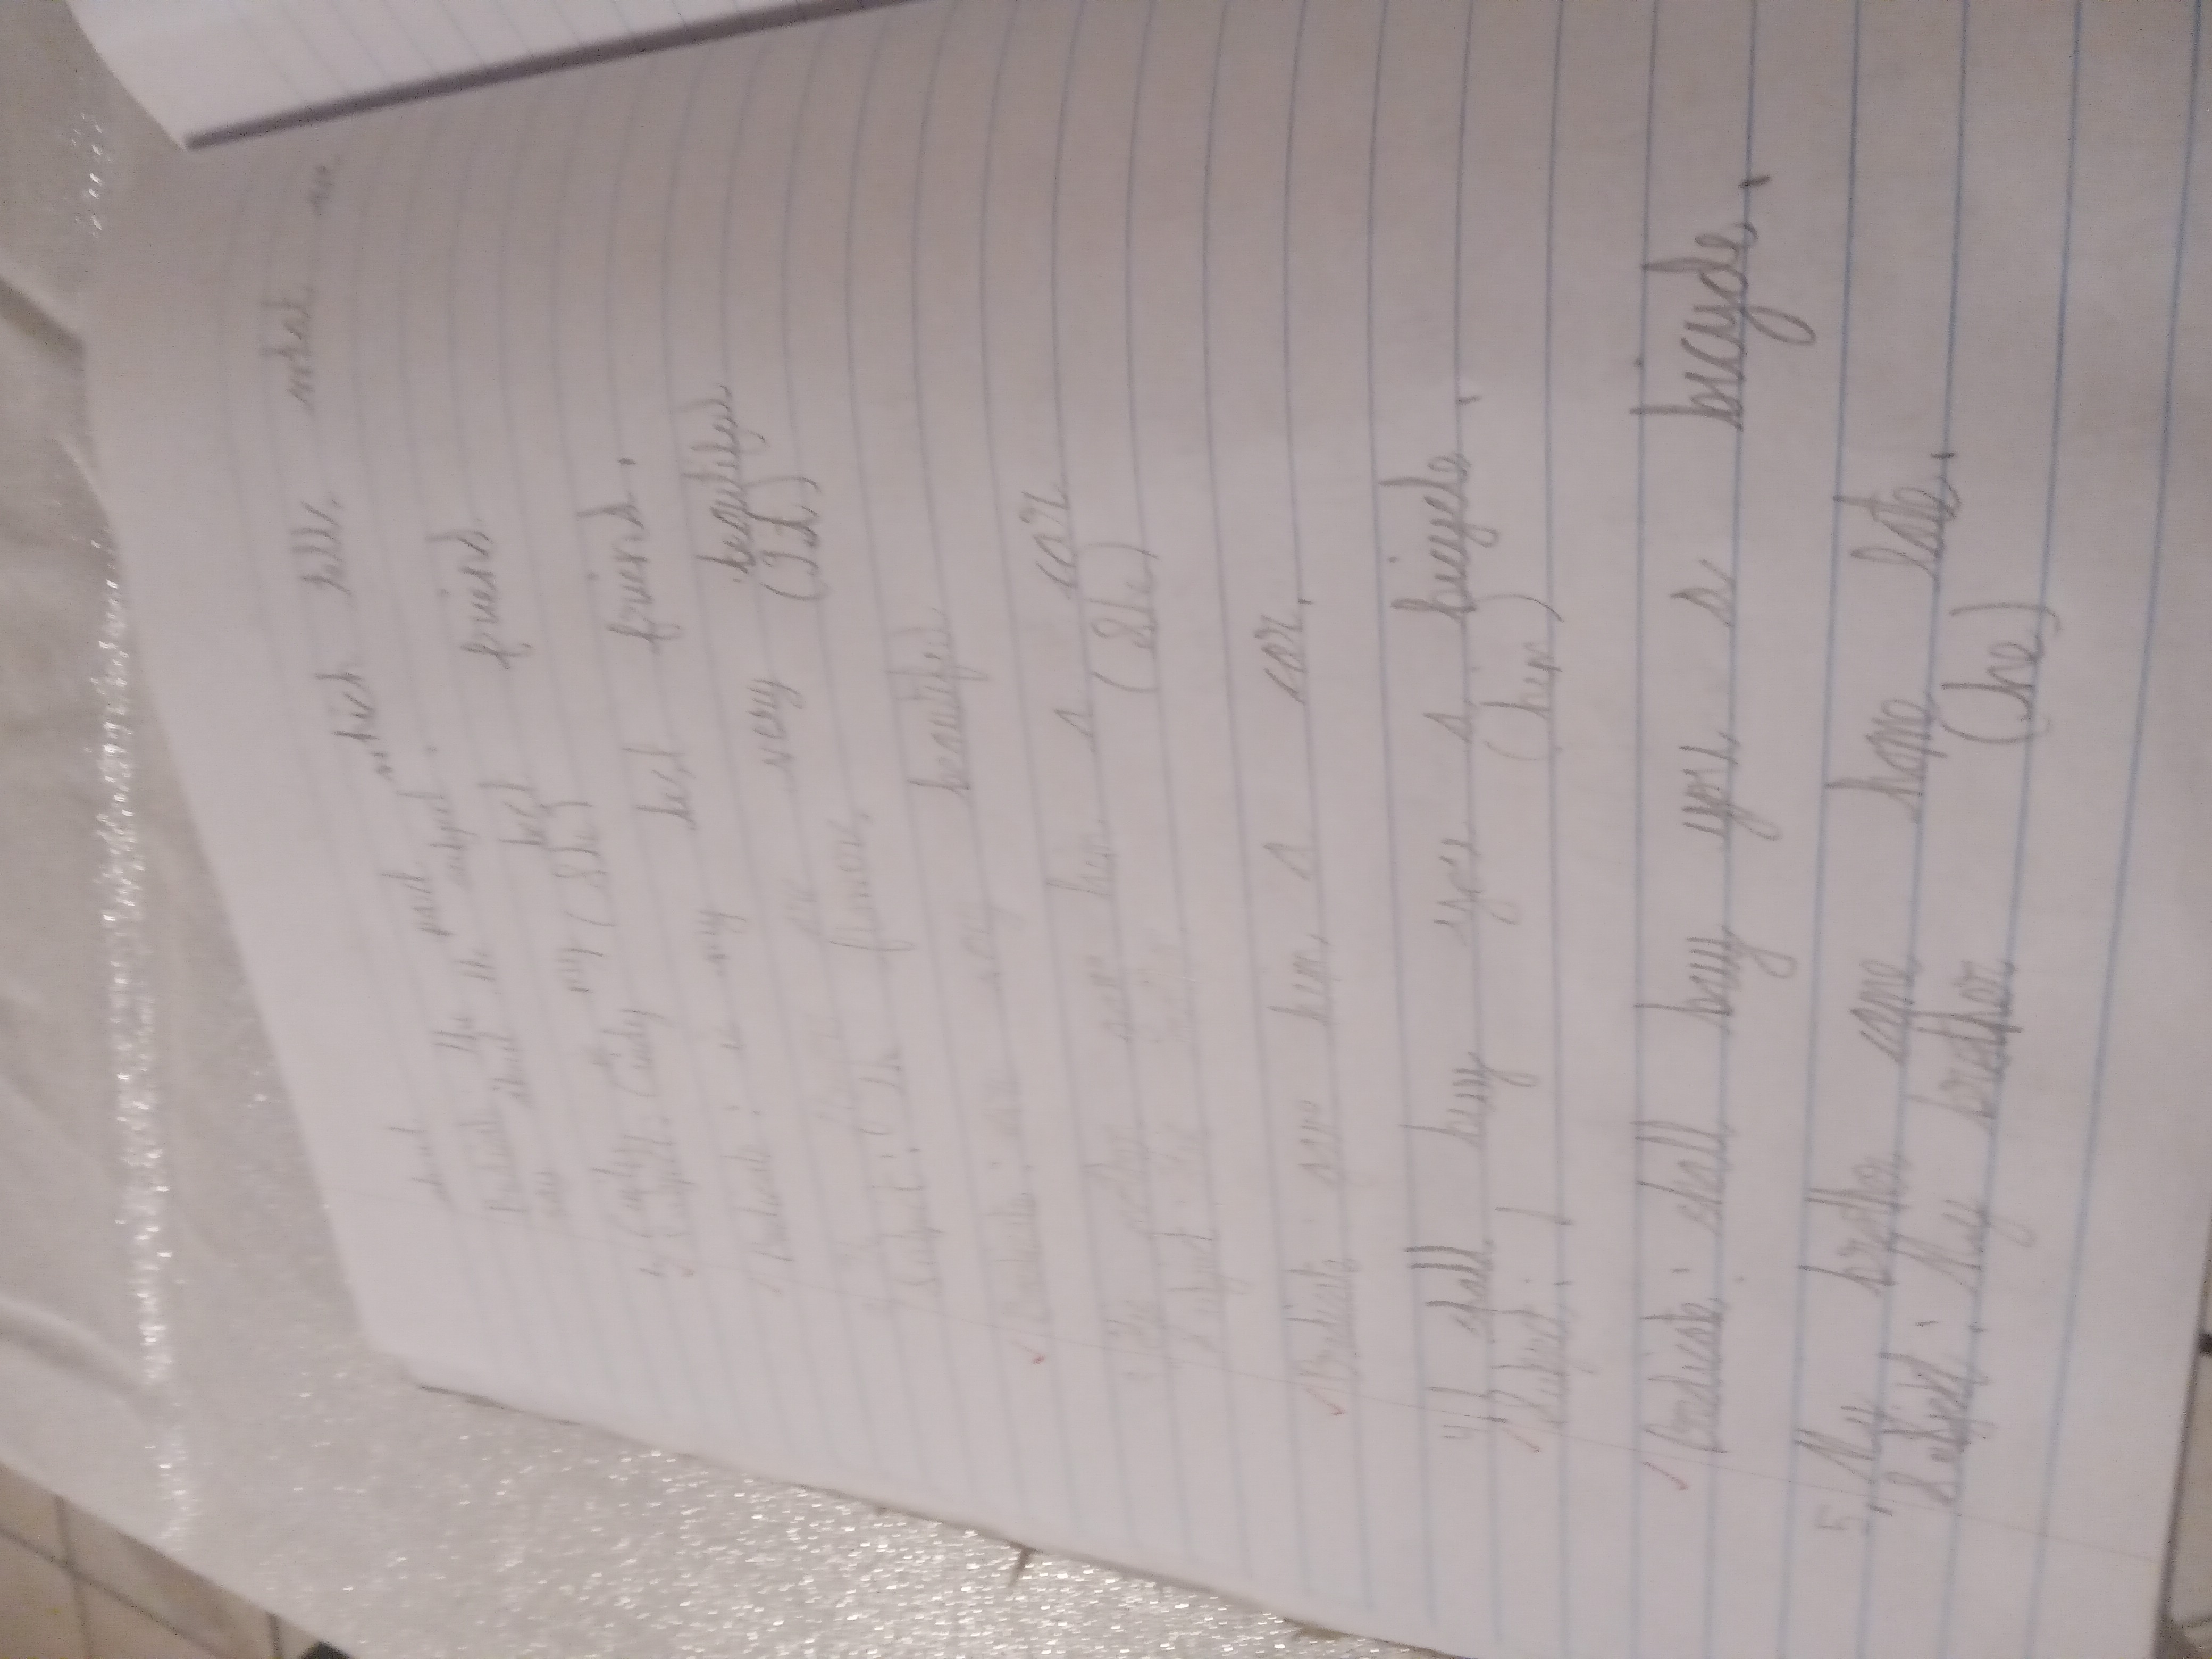 about
Predicate, the part which tells what we
say about the subject.
1, Cindy is my best friend
Subject: Cindy (She)
Predicate: is my best friend.
The flowers are very beautiful
Subject: The flowers. (It)
Predicate: are very beautiful
3 His mother gave him a car
Subject: His mother (She)
Predicate: gave him a car.
4, I shall buy you a bicycle.
Subject: I (him)
Predicate: shall buy you a bicycle.
5, My brother came home late.
Subject: My brother (he)